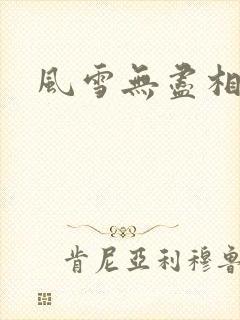 風雪無盡相
肯尼亞利穆魯